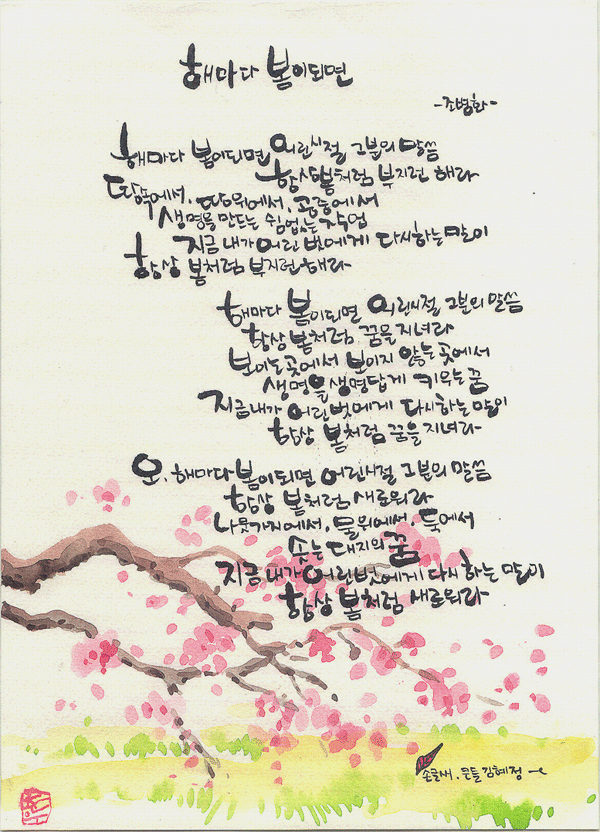 해마다 봄이되면
-조병화-
해마다 봄이되면 어린시절 그분의 말씀
항상봄처럼 부지런 해라
땅속에서, 땅위에서, 공중에서
생명을 만드는 쉼없는 작업
지금 내가 어린 벗에게 다시하는 말이
항상 봄처럼 부지런해라
해마다 봄이되면 어린시절 그분의 말씀
항상 봄처럼 꿈을 지녀라
보이는곳에서 보이지 않는 곳에서
생명을 생명답게 키우는 꿈
지금내가 어린벗에게 다시하는 말이
항상 봄처럼 꿈을 지녀라
오, 해마다봄이되면 어린시절 그분의 말씀
항상 봄처럼 새로워라
나뭇가지에서, 물위에서, 둑에서
솟는 대지의 꿈
지금 내가 어린벗에게 다시하는 말이
항상 봄처럼 새로워라
손글새. 문들 김혜정